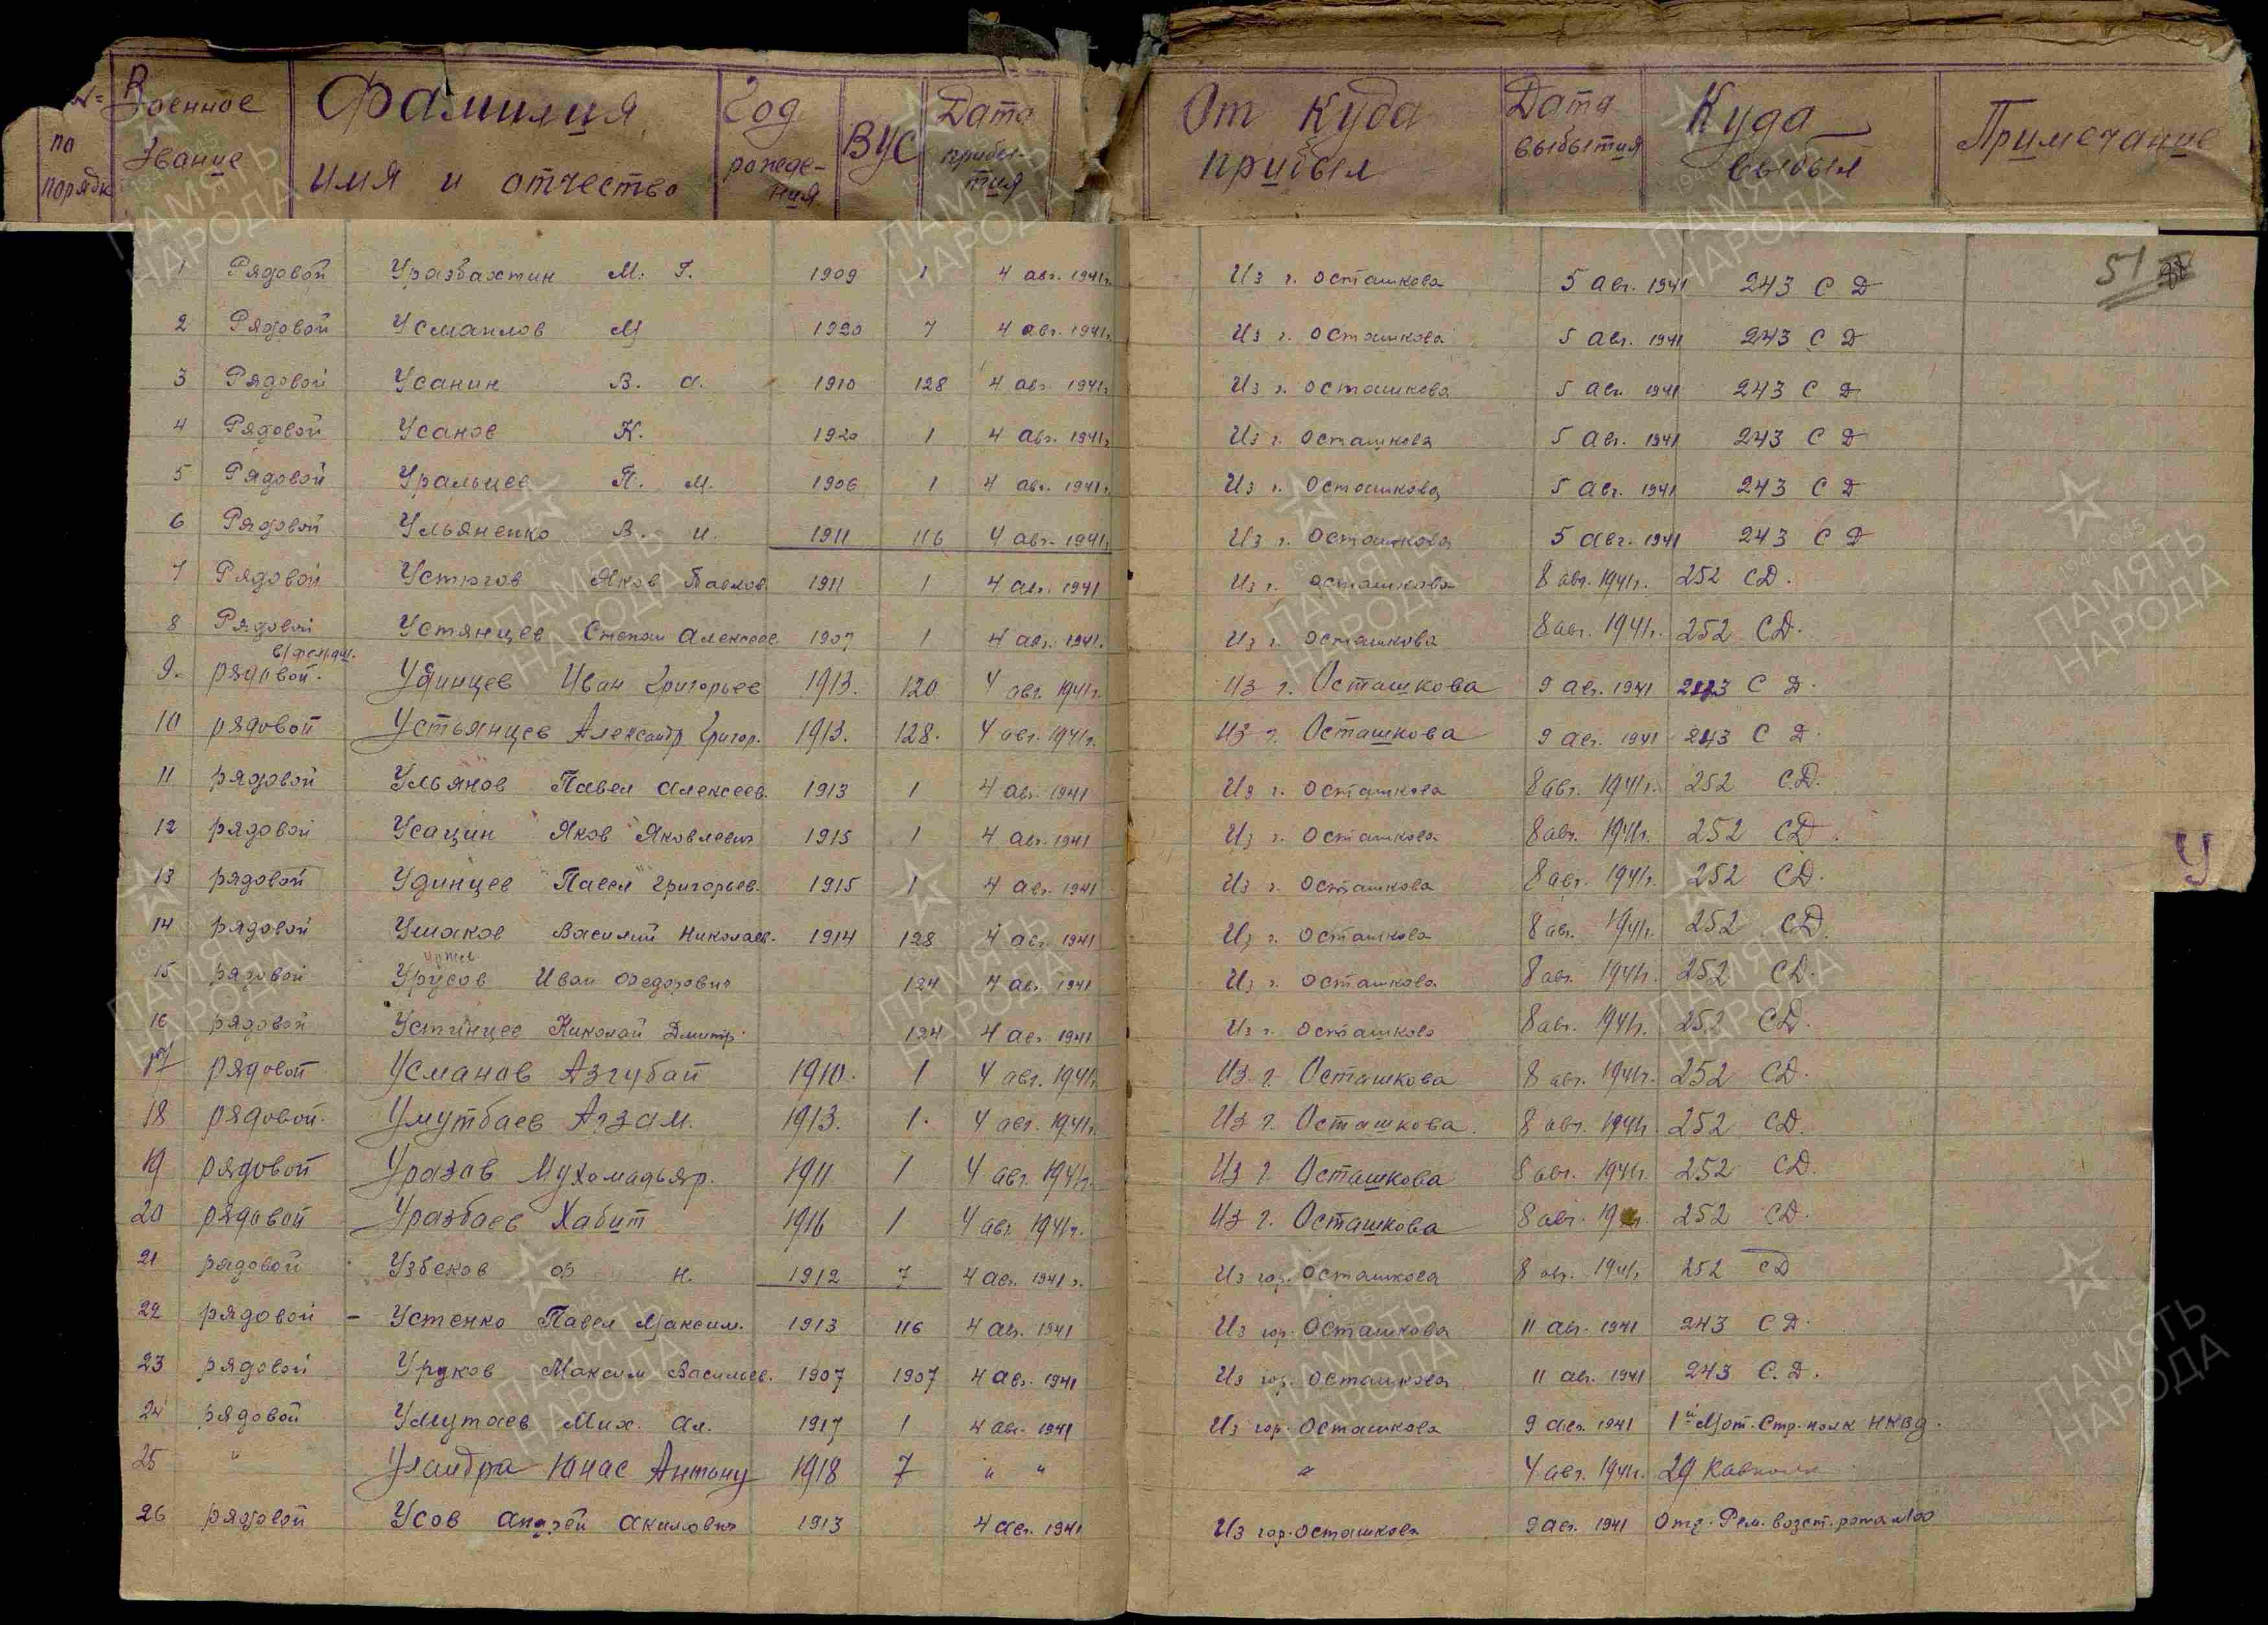 № по порядк Военное звание Фамилия имя и отчество Год рождения ВУС Дата прибытия От куда прибыл Дата выбытия Куда выбыл Примечание
51
1 Рядовой Уразбахтин М. Г. 1909 1 4 авг. 1941г. Из г. Осташкова 5 авг. 1941 243 СД
2 Рядовой Усмаилов М 1920 7 4 авг. 1941г. Из г. Осташкова 5 авг. 1941 243 СД
3 Рядовой Усанин В. а. 1910 128 4 авг. 1941г. Из г. Осташкова 5 авг. 1941 243 СД
4 Рядовой Усанов К. 1920 1 4 авг. 1941г. Из г. Осташкова 5 авг. 1941 243 СД
5 Рядовой Уральцев П. М. 1906 1 4 авг. 1941г. Из г. Осташкова 5 авг. 1941 243 СД
6 Рядовой Ульяненко В. и. 1911 116 4 авг. 1941г. Из г. Осташкова 5 авг. 1941 243 СД
7 Рядовой Устюгов Яков Павлов. 1911 1 4 авг. 1941 Из г. Осташкова 8 авг. 1941г. 252 СД.
8 Рядовой Устянцев Степан Алексеев. 1907 1 4 авг. 1941. Из г. Осташкова 8 авг. 1941г. 252 СД.
в/фельдш.
9. рядовой. Удинцев Иван Григорьев 1913. 120 4 авг. 1941г. Из г. Осташкова 9 авг. 1941 243 СД.
10 рядовой Устьянцев Александр Григор. 1913. 128. 4 авг. 1941г. Из г. Осташкова 9 авг. 1941 243 СД.
11 рядовой Ульянов Павел Алексеев. 1913 1 4 авг. 1941 Из г. Осташкова 8 авг. 1941г. 252 СД.
12 рядовой Усацин Яков Яковлевич 1915 1 4 авг. 1941 Из г. Осташкова 8 авг. 1941г. 252 СД.
13 рядовой Удинцев Павел Григорьев. 1915 1 4 авг. 1941 Из г. Осташкова 8 авг. 1941г. 252 СД.
14 рядовой Ушаков Василий Николаев. 1914 128 4 авг. 1941 Из г. Осташкова 8 авг. 1941г. 252 СД.
15 рядовой Урусов Иван Федорович 124 4 авг. 1941 Из г. Осташкова 8 авг. 1941г. 252 СД.
16 рядовой Устинцев Николай Дмитр. 124 4 авг. 1941 Из г. Осташкова 8 авг. 1941г. 252 СД.
17 рядовой Усманов Азгубай 1910. 1 4 авг. 1941г. Из г. Осташкова 8 авг. 1941г. 252 СД.
18 рядовой. Умутбаев Агзам. 1913. 1. 4 авг. 1941г. Из г. Осташкова. 8 авг. 1941г. 252 СД.
19 рядовой Уразов Мухамадьяр. 1911 1 4 авг. 1941г. Из г. Осташкова 8 авг. 1941г. 252 СД.
20 рядовой Уразбаев Хабит 1916 1 4 авг. 1941г. Из г. Осташкова 8 авг. 252 СД.
21 рядовой Узбеков н. 1912 7 4 авг. 1941 г. Из гор. Осташкова 8 авг. 1941г. 252 СД
22 рядовой - Устенко Павел Максим. 1913 116 4 авг. 1941 Из гор. Осташкова 11 авг. 1941 243 СД.
23 рядовой Уруков Максим Васильев. 1907 1907 4 авг. 1941 Из гор. Осташкова 11 авг. 1941 243 С.Д.
24 рядовой Умутаев Мих. Ал. 1917 1 4 авг. 1941 Из гор. Осташкова 9 авг. 1941 1й Мот. Стр. полк НКВД.
25 " Уландра Юнас Антону 1918 7 " " " 4 авг. 1941г. 29 Кавполк
26 рядовой Усов Андрей Акимович 1913 4 авг. 1941 Из гор. Осташкова 9 авг. 1941 Отд. Рем. возст. рота №100
У